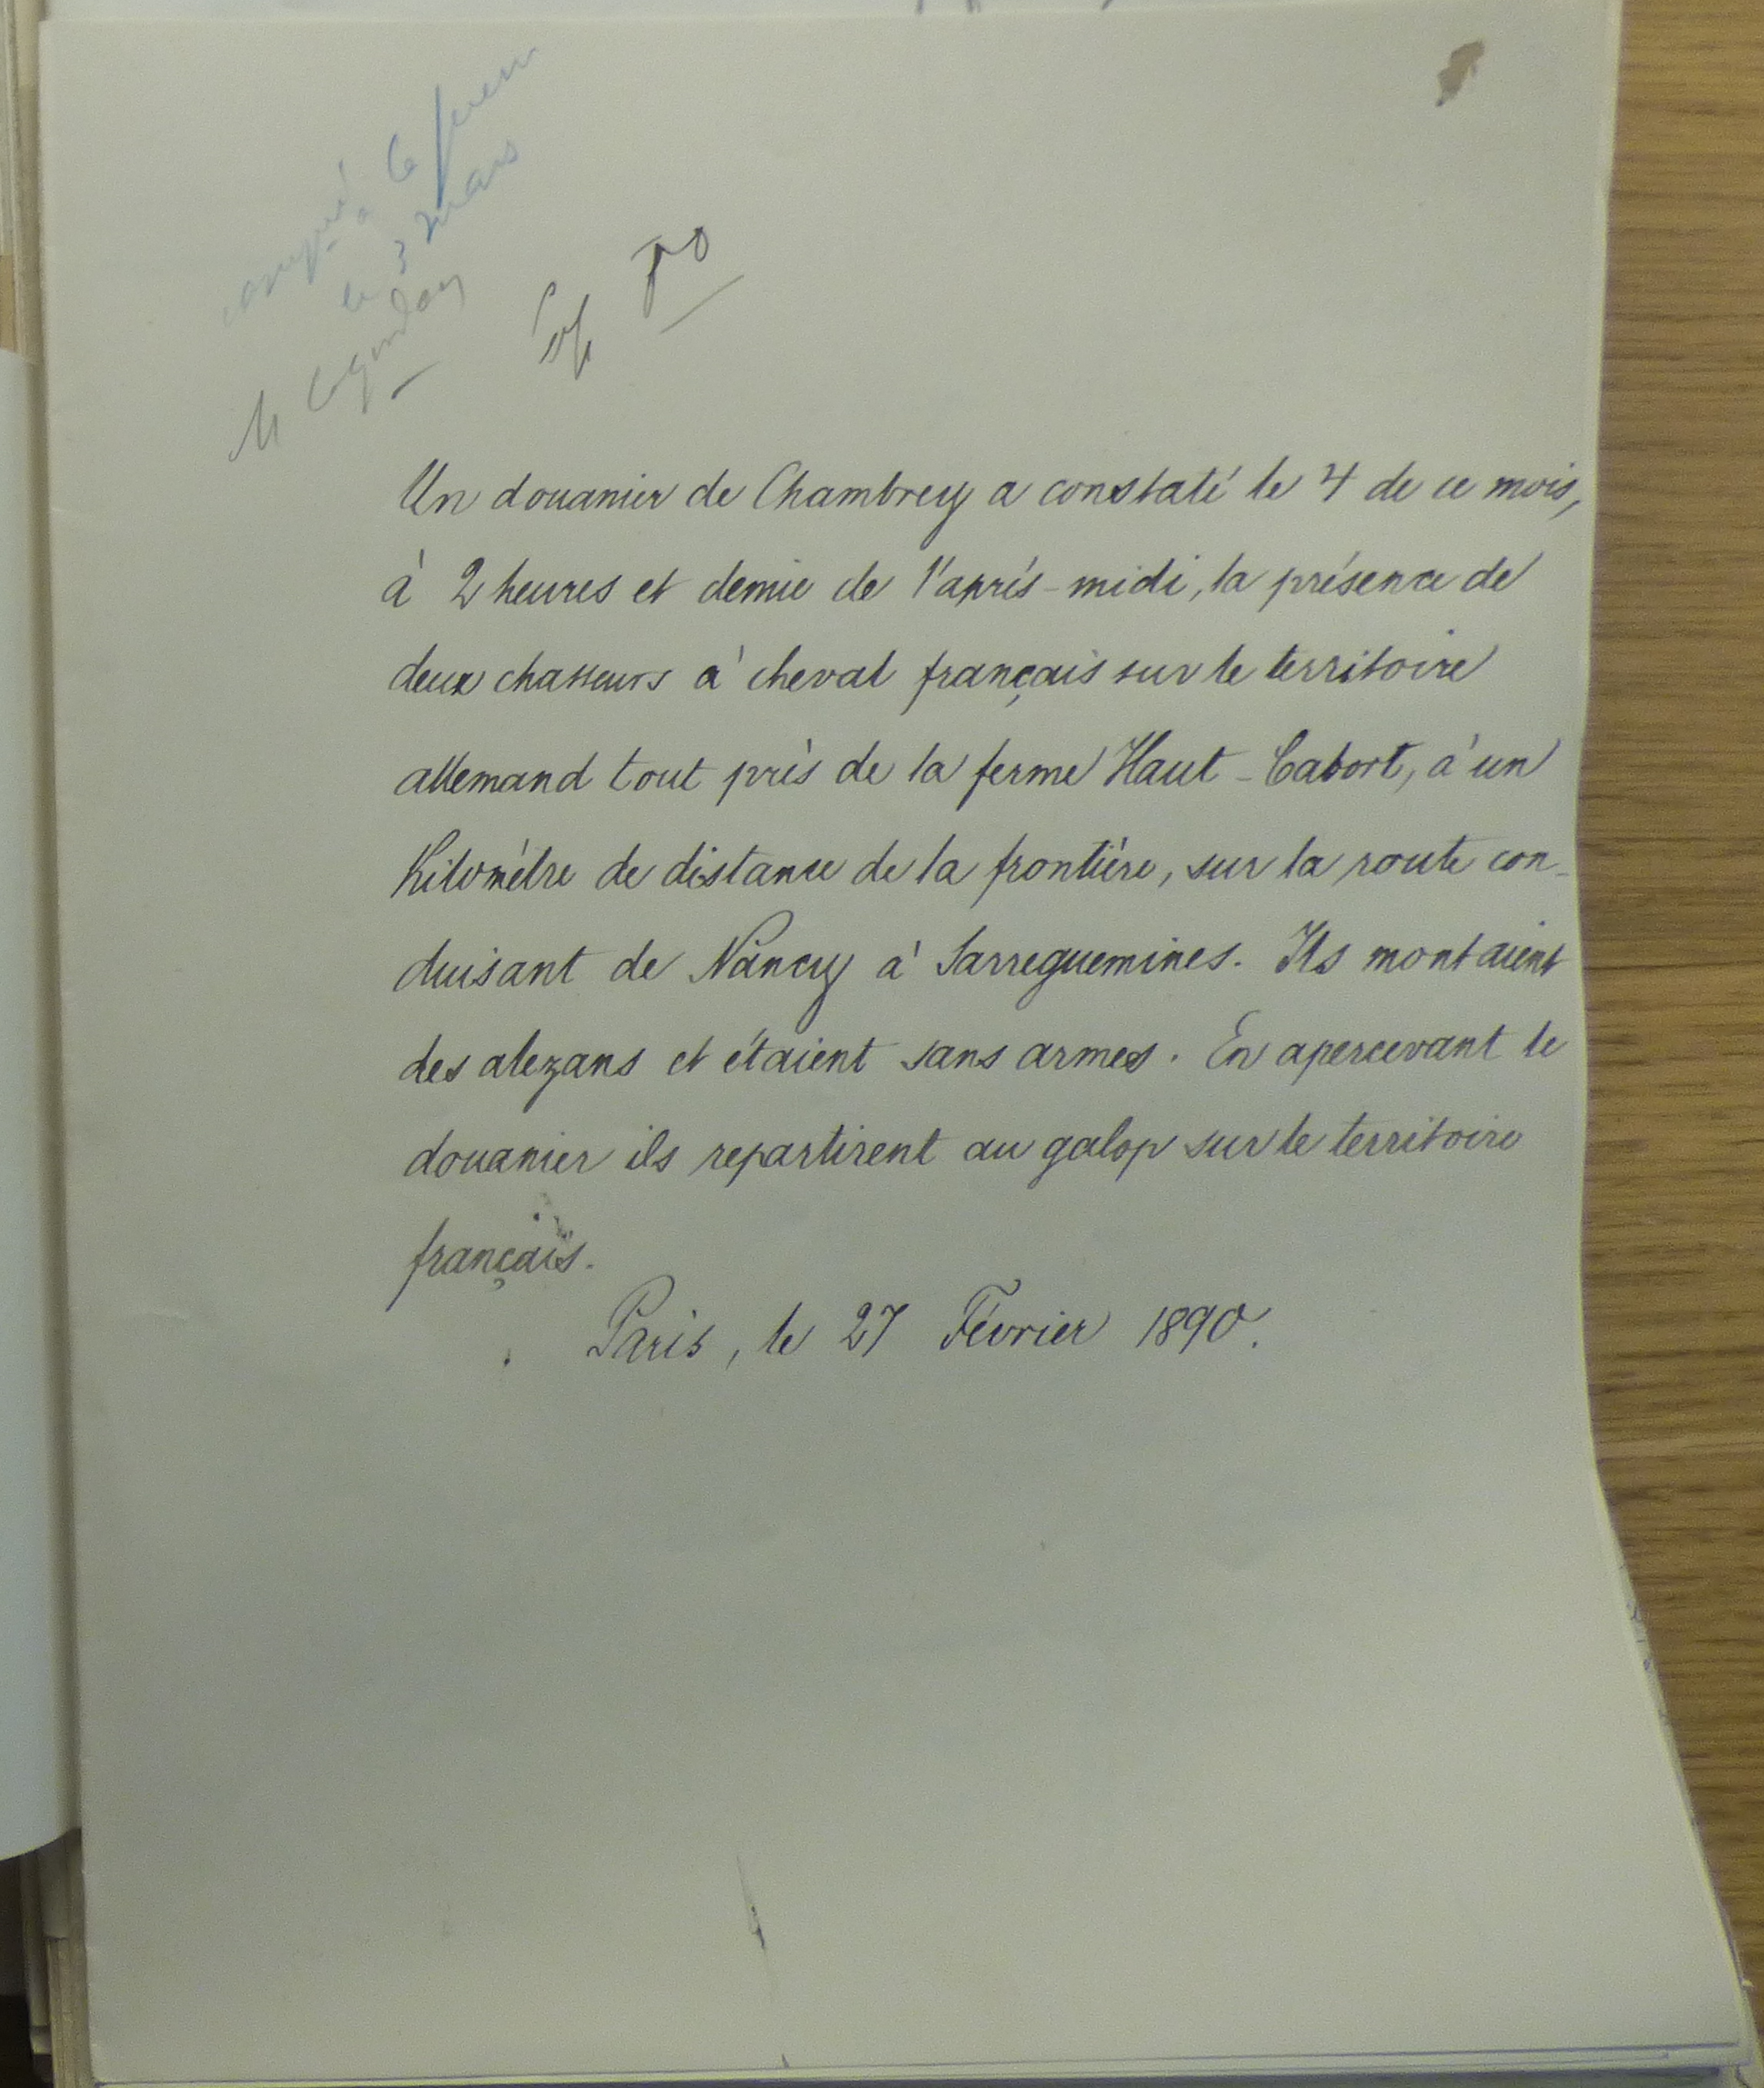 à
le 3 mars
Un douanier de Chambrey a constaté le 4 de ce mois,
à 2 heures et demie de l'après-midi, la présence de
deux chasseurs à cheval français sur le territoire
allemand tout près de la ferme Haut-Cabort, à un
Kilomètre de distance de la frontière, sur la route con-
duisant de Nancy à Sarreguemines. Ils montaient
des alezans et étaient sans armes. En apercevant le
douanier ils repartirent au galop sur le territoire
français.
Paris, le 27 Février 1890.